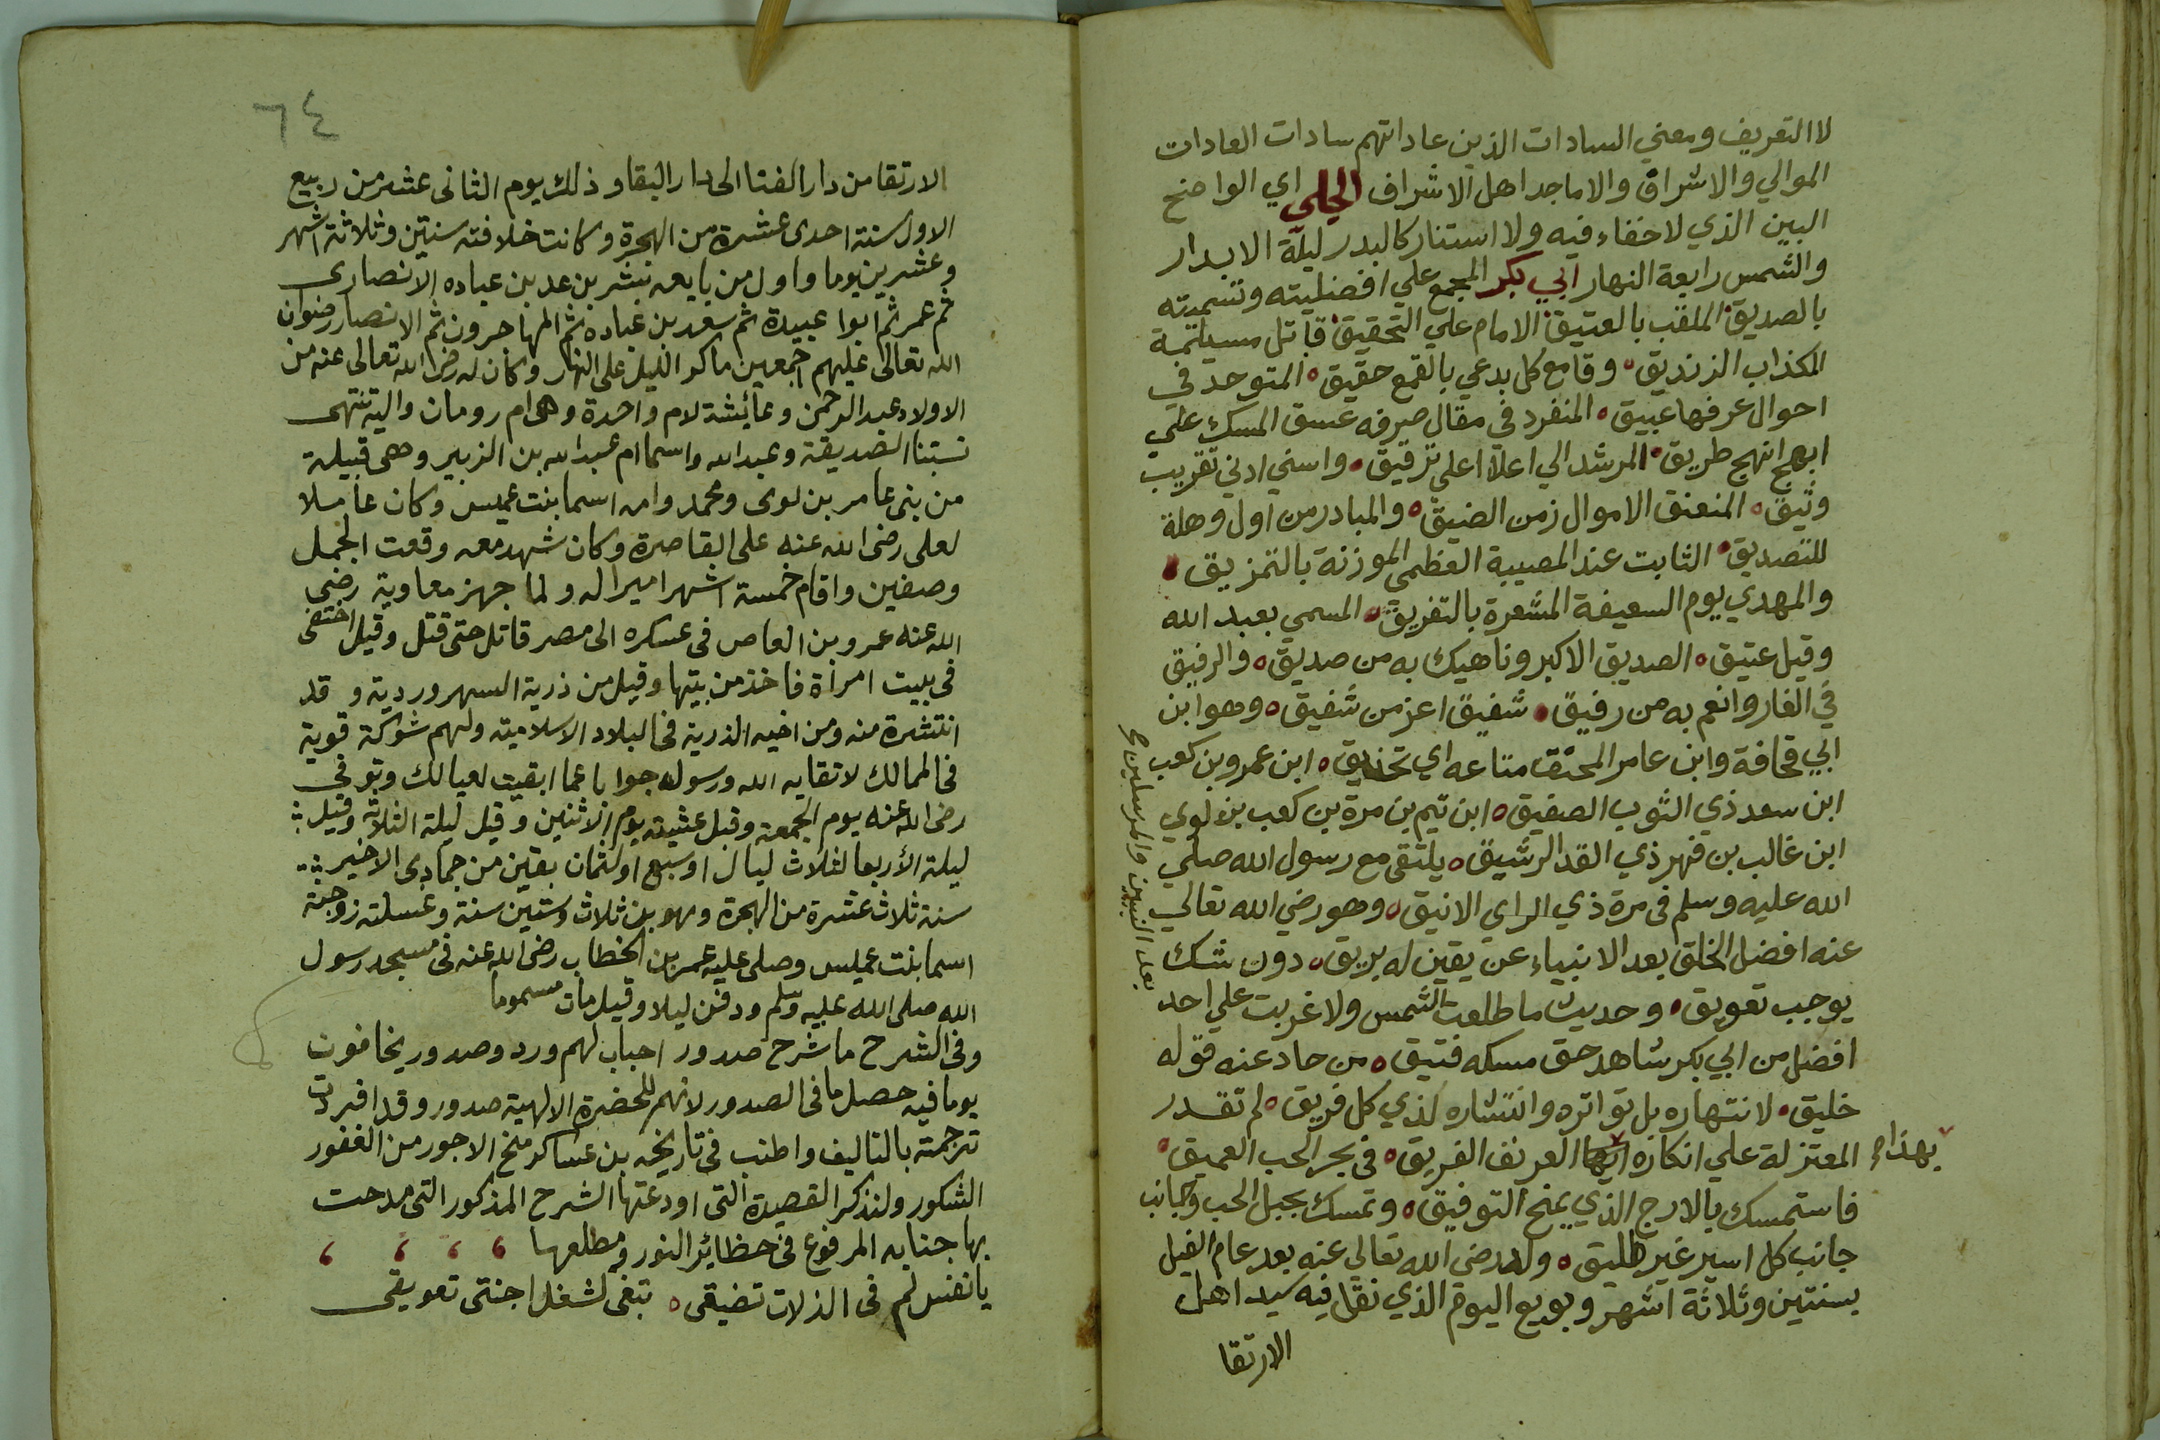 لا التعريف ومعني السادات الذين عاداتهم سادات العادات
الموالي والاشراق والاماجد اهل الاشراف الجلي اي الواضح
البين الذي لا خفاء فيه ولا استنار كالبدر ليلة الابدار
والشمس رايعة النهار ابي بكر المجمع علي افضليته وتسميته
بالصديق الملقب بالعتيق الامام علي التحقيق قاتل مسيلمة
الكذاب الزنديق وقامع كل بدعي بالقمع حقيق المتوحد في
احوال عرفها عبيق المنفرد في مقال صرفه عسق المسك علي
ابهج انهج طريق المرشد الي اعلا اعلي ترقيق واسني ادني تقريب
وثيق المنفق الاموال زمن الضيق والمبادر من اول وهلة
للتصديق الثابت عند المصيبة العظمي الموزنة بالتمزيق
والمهدي يوم السعيفة المشعرة بالتفريق المسمي بعبد الله
وقيل عتيق الصديق الاكبر وناهيك به من صديق والرفيق
في الغار وانعم به من رفيق شفيق اعز من شفيق وهو ابن
ابي قحافة وابن عامر المحنق متاعه اي تحذيق ابن عمرو بن كعب
ابن سعد ذي الثوب الصفيق ابن تيم بن مرة بن كعب بن لوي
ابن غالب بن فهر ذي القد الرشيق يلتقي مع رسول الله صلي
الله عليه وسلم في مرة ذي الراي الانيق وهو رضي الله تعالي
عنه افضل الخلق بعد الانبياء عن يقين له بريق دون شك
يوجب تعويق وحديث ما طلعت الشمس ولا غربت علي احد
بعد النبيين والمرسلين صح
افضل من ابي بكر شاهد حق مسكه فتيق من حاد عنه فوله
خليق لانتهاره بل تواتره وانتشاره لذي كل فريق لم تقدر
المعتزلة علي انكاره ايها العرنف الفريق في بحر الحب العميق
بهذا صح
فاستمسك بالارج الذي يمنح التوفيق وتمسك بحبل الحب وجانب
جانب كل اسير غير طليق ولد رضي الله تعالي عنه بعد عام الفيل
بسنتين وثلاثة اشهر وبويع اليوم الذي نقل فيه سيد اهل
الارتقا
٦٤
الارتقا من دار الفنا الى دار البقا وذلك يوم الثانى عشر من ربيع
الاول سنة احدى عشرة من الهجرة وكانت خلافته سنتين وثلاثة اشهر
وعشرين يوما واول من بايعه بشر بن سعد بن عباده الانصارى
ثم عمر ثم ابوا عبيدة ثم سعد بن عباده ثم المهاجرون ثم الانصار رضوان
الله تعالى عليهم اجمعين ماكر الليل على النهار وكان له رضى الله تعالى عنه من
الاولاد عبد الرحمن وعائشة لام واحدة وهى ام رومان واليه تنتهى
نسبتنا الصديقة وعبد الله واسما ام عبد الله بن الزبير وهى قبيلة
من بنى عامر بن لوى ومحمد وامه اسما بنت عميس وكان عاملا
لعلى رضى الله عنه على القاصرة وكان شهد معه وقعت الجمل
وصفين واقام خمسة اشهر اميرا له ولما جهز معاوية رضى
الله عنه عمرو بن العاص فى عسكره الى مصر قاتل حتى قتل وقيل اختفى
فى بيت امرأة فاخذ من بيتها وقيل من ذرية السهروردية وقد
انتشرة منه ومن اخيه الذرية فى البلاد الاسلامية ولهم شوكة قوية
فى الممالك لاتقايه الله ورسوله جوابا عما ابقيت لعيالك وتوفى
رضى الله عنه يوم الجمعة وقيل عشية يوم الاثنين وقيل ليلة الثلاثة وقيل
ليلة الأربعا لثلاث ليال او سبع او لثمان بقين من جمادى الاخير
سنة ثلاث عشرة من الهجرة وهو بن ثلاث وستين سنة وغسلته زوجته
اسما بنت عميس وصلى عليه عمر بن الخطاب رضى الله عنه فى مسجد رسول
الله صلى الله عليه وسلم ودفن ليلا وقيل مات مسموما
وفى الشرح ما شرح صدور احباب لهم ورد وصدور يخافون
يوما فيه حصل ما فى الصدور لانهم للحضرة الالهية صدور وقد افردت
ترجمته بالتاليف واطنب فى تاريخه بن عساكر منح الاجور من الغفور
الشكور ولنذكر القصيدة التى اودعتها الشرح المذكور التى مدحت
بها جنابه المرفوع فى حظائر النور ومطلعها
يا نفس لم فى الذلات تضيقى تبغى لشغل اجنتى تعويقى